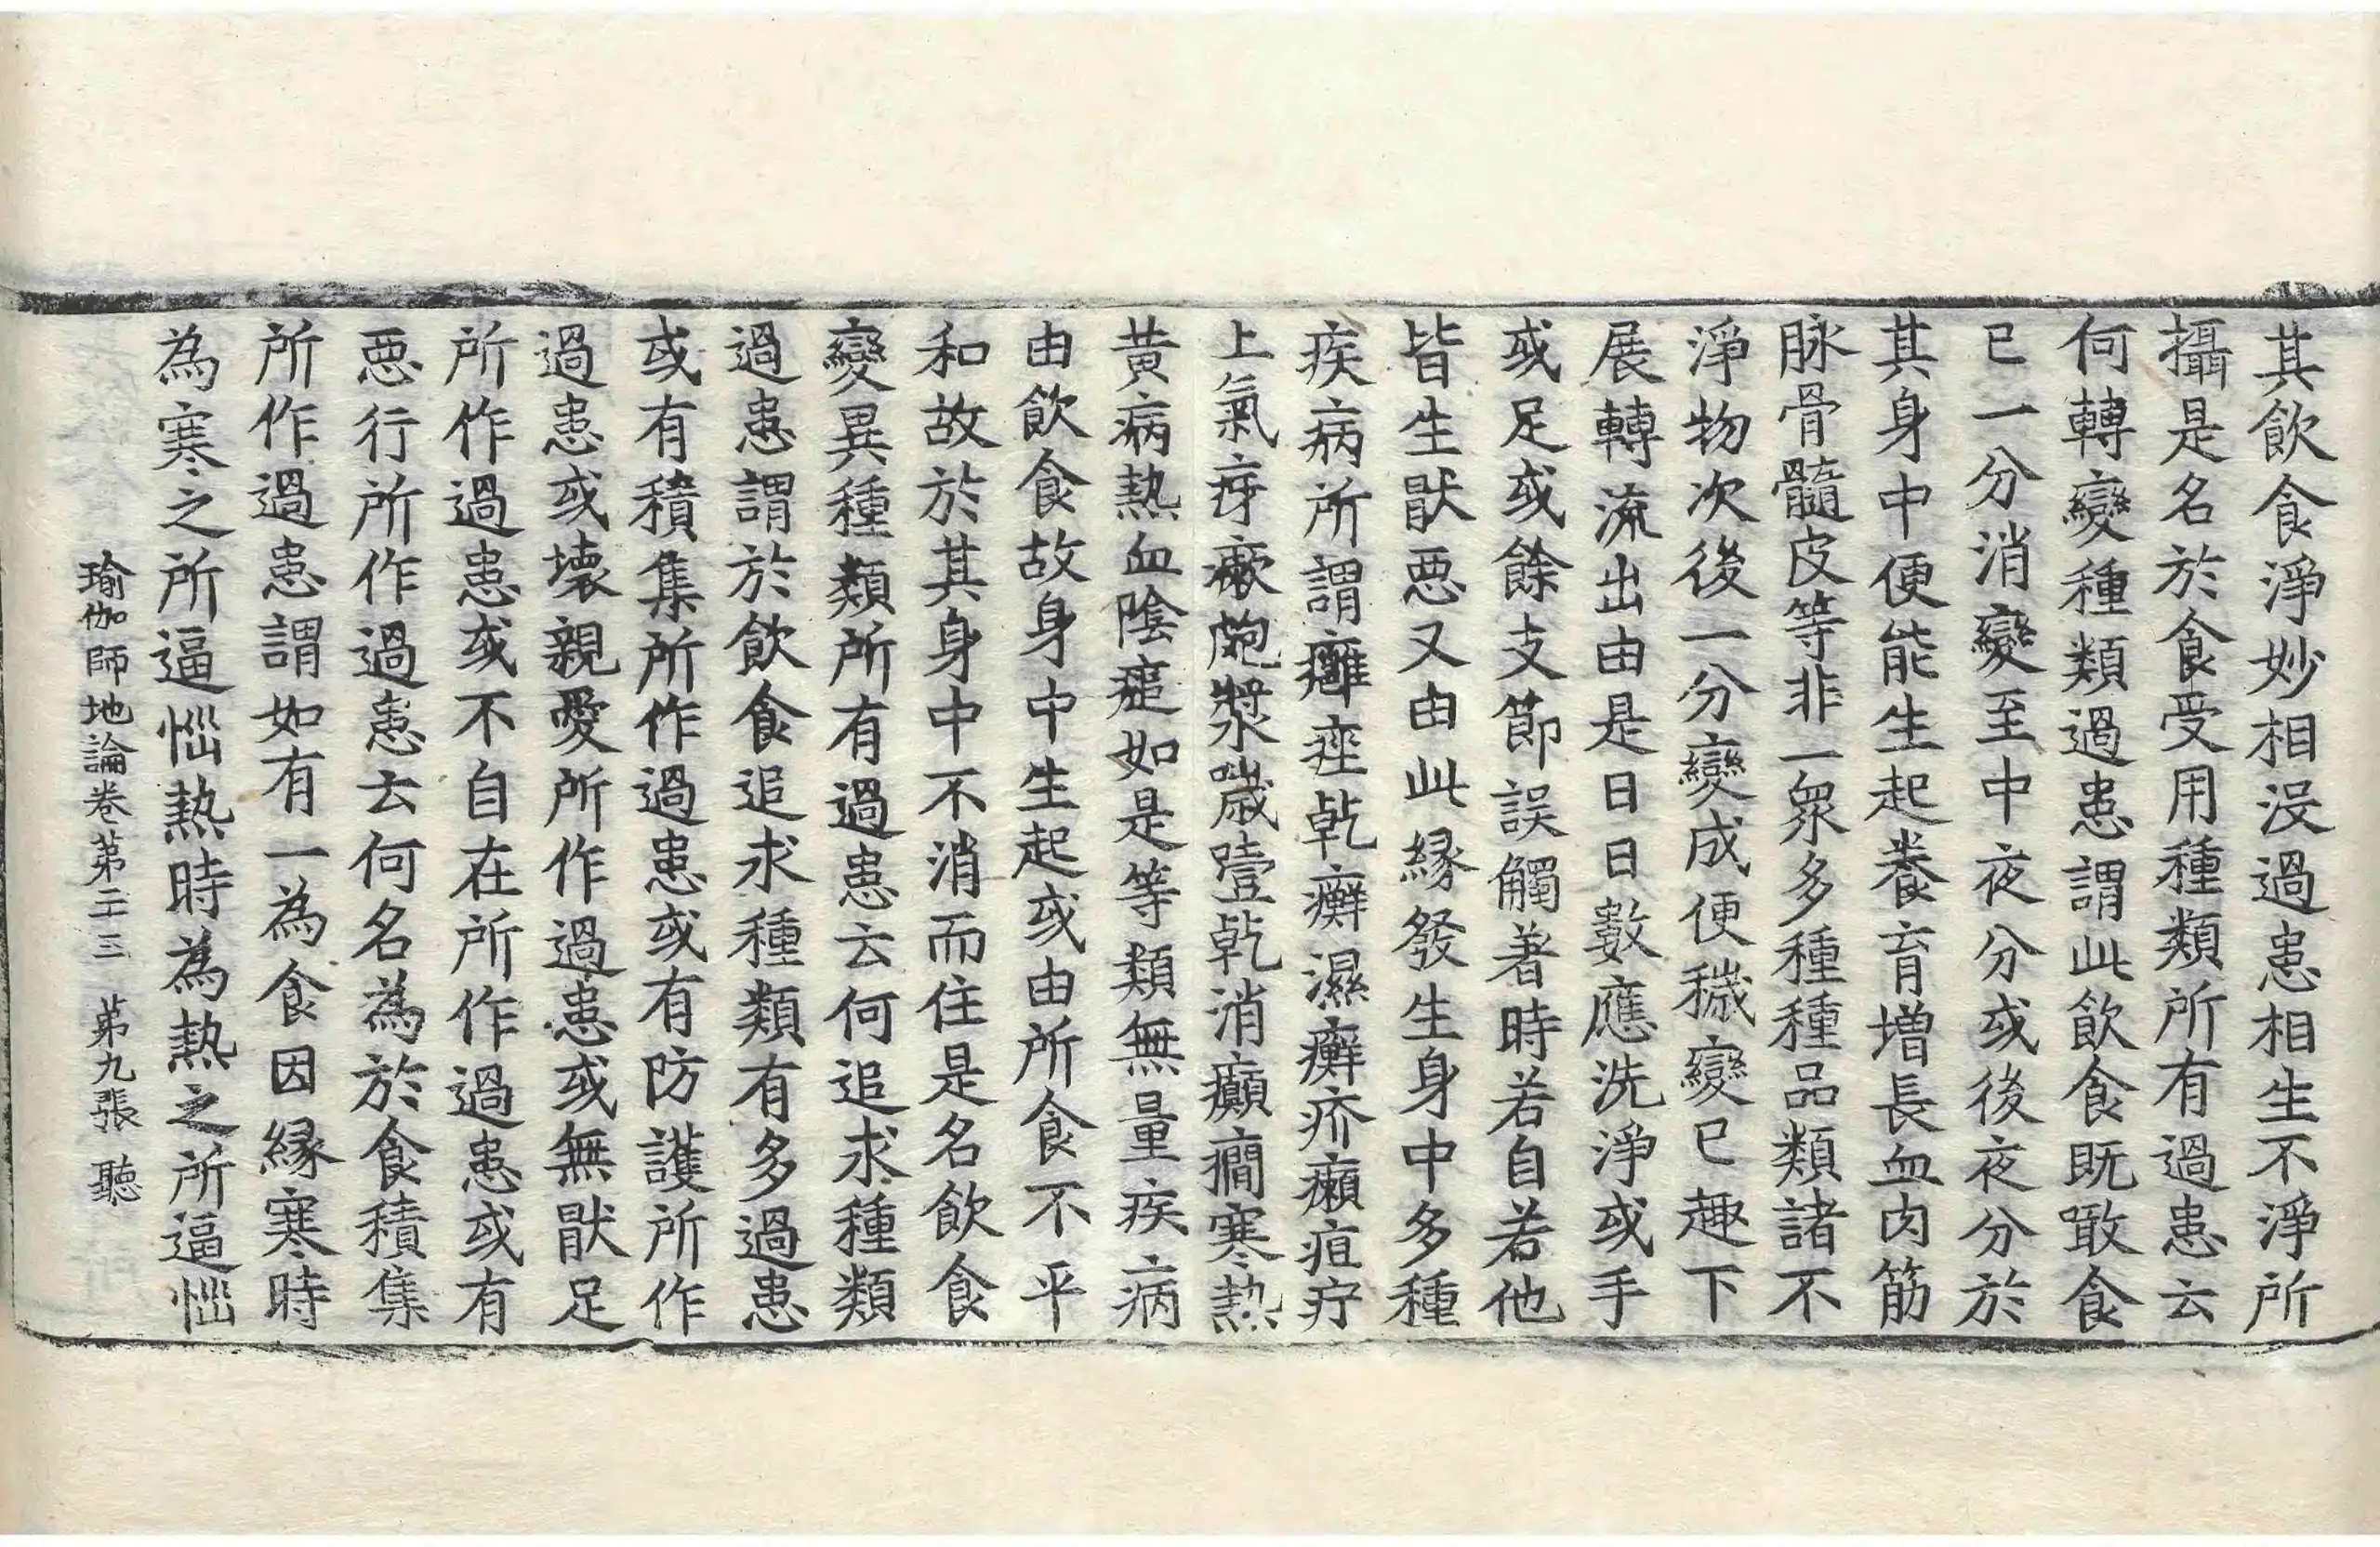 其飲食淨妙相沒過患相生不淨所
攝是名於食受用種類所有過患云
何轉變種類過患謂此飲食既噉食
已一分消變至中夜分或後夜分於
其身中便能生起養育增長血肉筋
脉骨髓皮等非一衆多種種品類諸不
淨物次後一分變成便穢變已趣下
展轉流出由是日日數應洗淨或手
或足或餘支節誤觸著時若自若他
皆生猒惡又由此緣發生身中多種
疾病所謂癰痤乾癬濕癬疥癩疽疔
上氣疨瘷皰漿噦噎乾消癲癎寒熱
黃病熱血陰㿗如是等類無量疾病
由飲食故身中生起或由所食不平
和故於其身中不消而住是名飲食
變異種類所有過患云何追求種類
過患謂於飲食追求種類有多過患
或有積集所作過患或有防護所作
過患或壞親愛所作過患或無猒足
所作過患或不自在所作過患或有
惡行所作過患云何名為於食積集
所作過患謂如有一為食因緣寒時
為寒之所逼惱熱時為熱之所逼惱
瑜伽師地論卷第二十三 第九張 聽